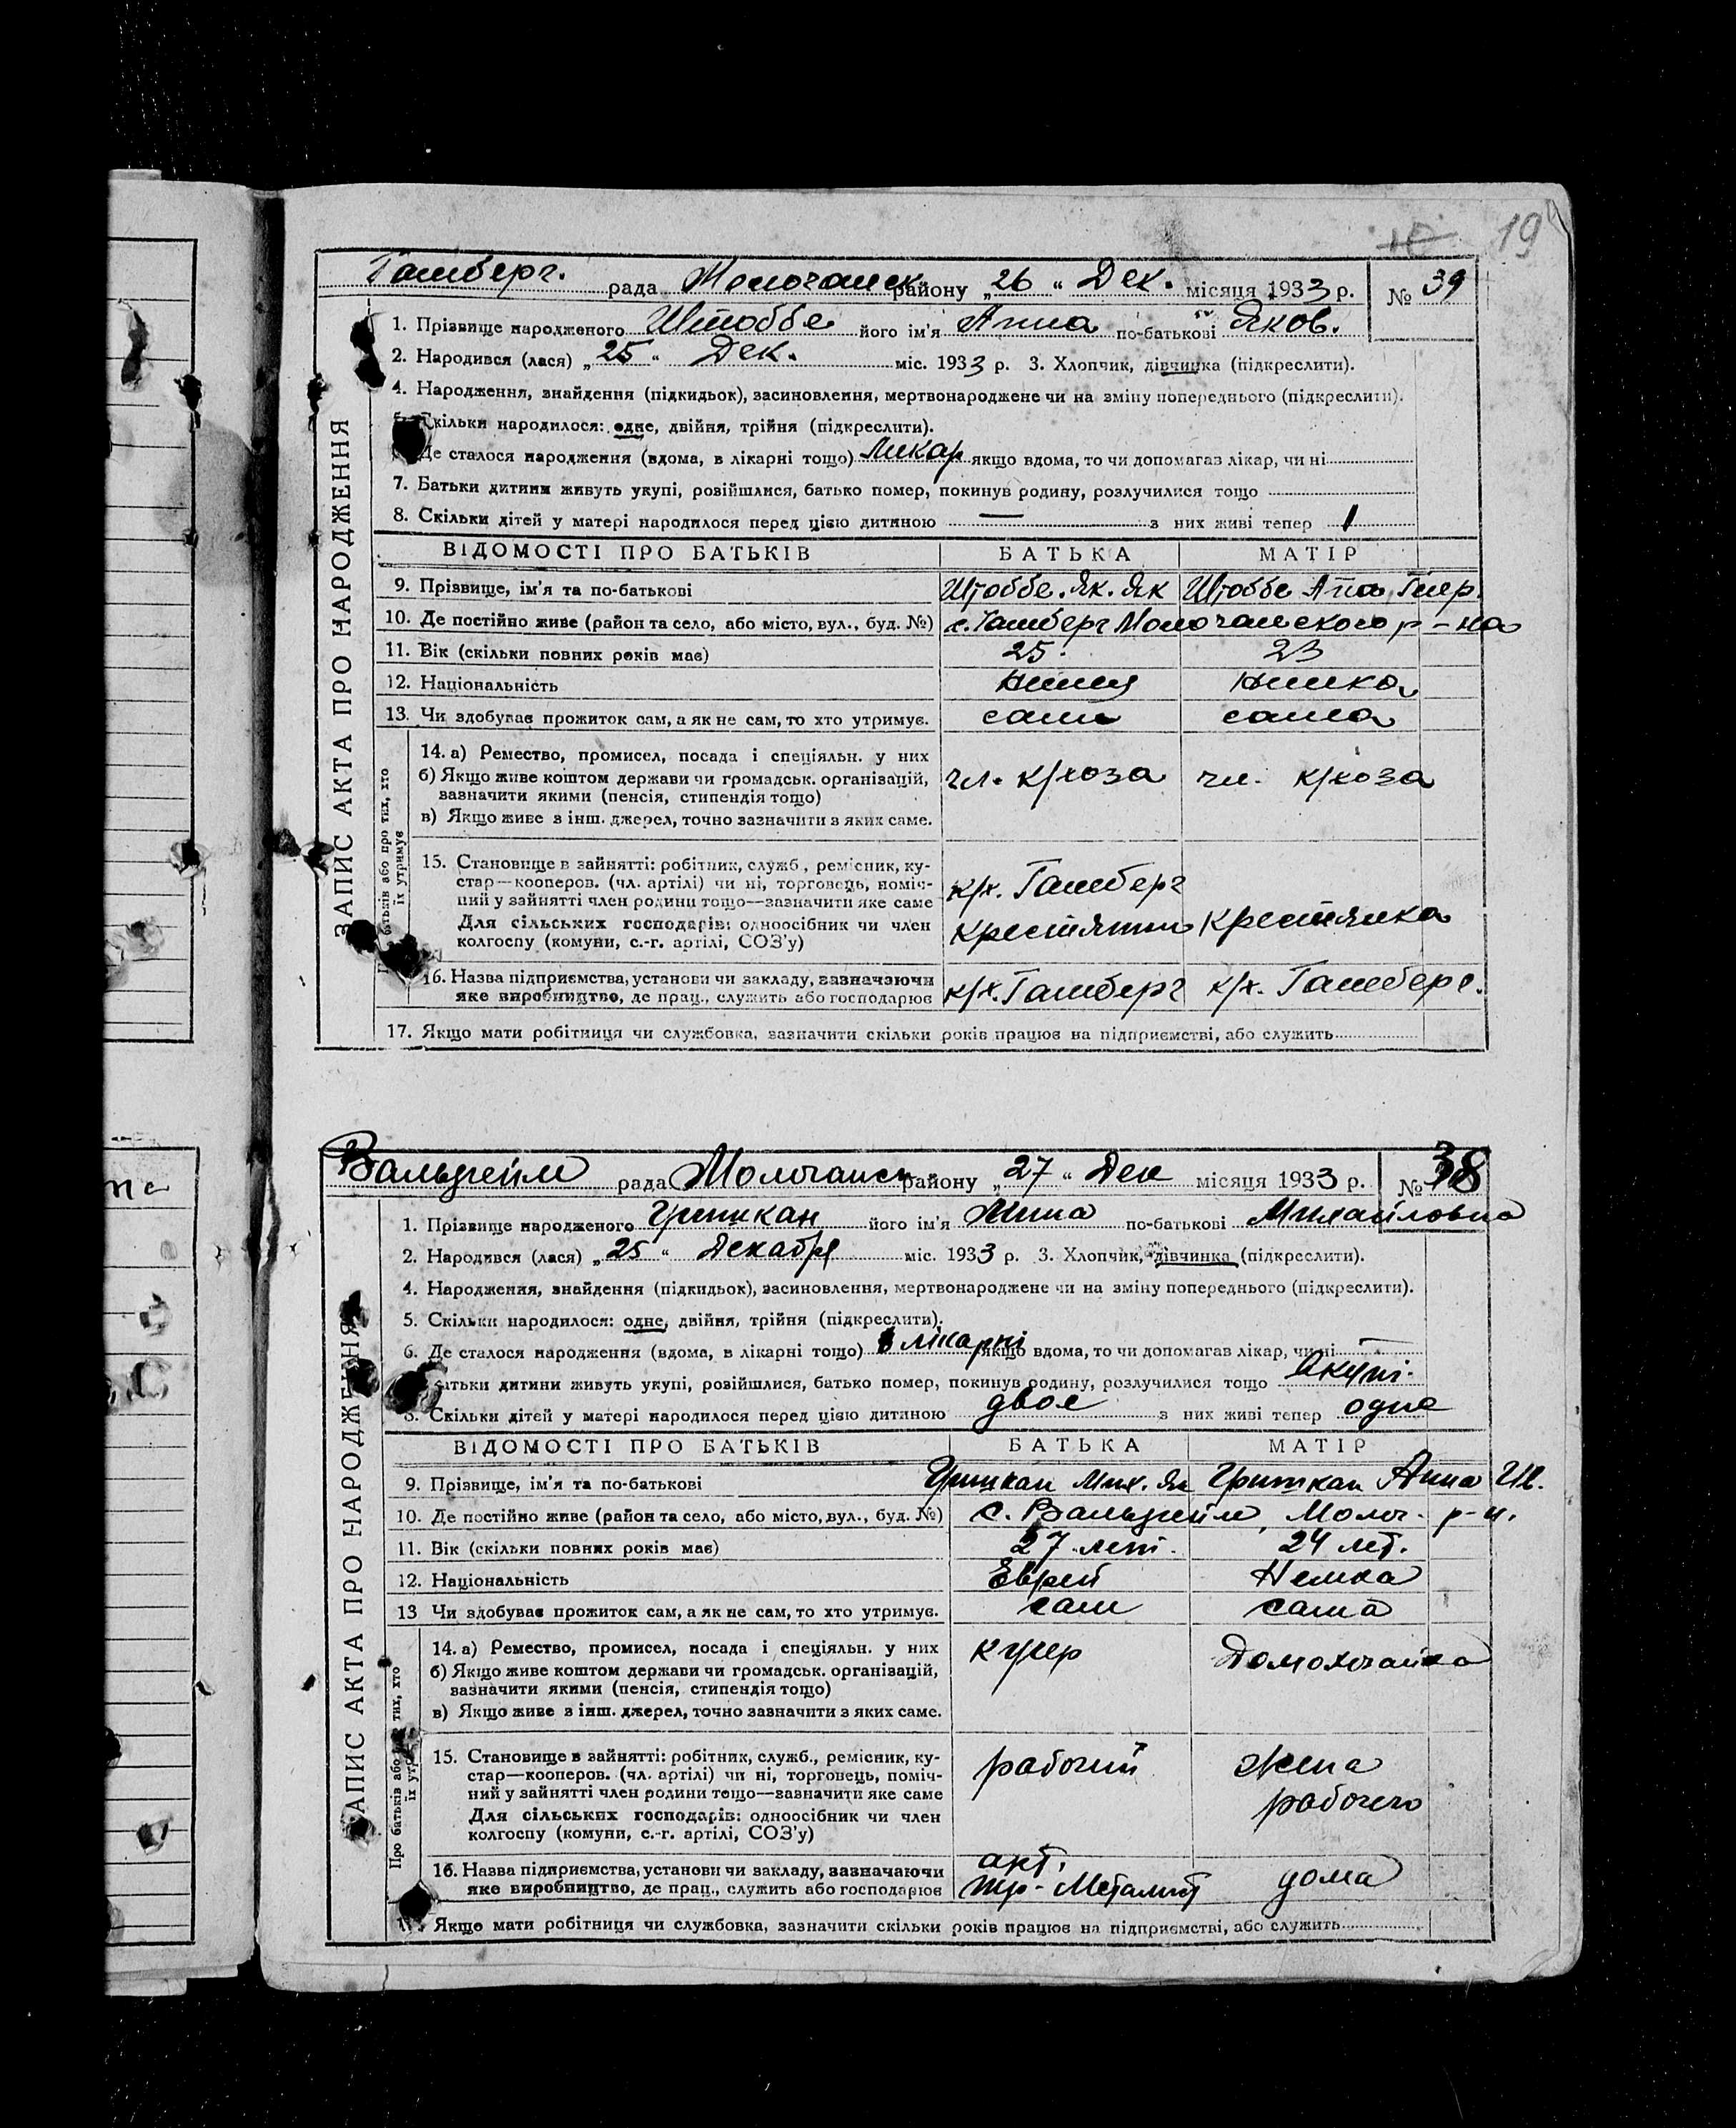 19
Гамберг. рада Молочанск. району „26 “ Дек. місяця 1933 р. № 39
ЗАПИС АКТА ПРО НАРОДЖЕННЯ
1. Прізвище народженого Штоббе його ім'я Анна по-батькові Яков.
2. Народився (лася) „25 “ Дек. міс. 1933 р. 3. Хлопчик, дівчинка (підкреслити).
4. Народження, знайдення (підкидьок), засиновлення, мертвонароджене чи на зміну попереднього (підкреслити).
Скільки народилося: одне, двійня, трійня (підкреслити).
Де сталося народження (вдома, в лікарні тощо) Ликар якщо вдома, то чи допомагав лікар, чи ні
7. Батьки дитини живуть укупі, розійшлися, батько помер, покинув родину, розлучилися тощо
8. Скільки дітей у матері народилося перед цією дитиною — з них живі тепер 1
ВІДОМОСТІ ПРО БАТЬКІВ БАТЬКА МАТІР
9. Прізвище, ім'я та по-батькові Штоббе. Як. Як Штоббе Ана
10. Де постійно живе (район та село, або місто, вул., буд. №) с. Гамберг Молочанского р-на
11. Вік (скільки повних років має) 25. 23
12. Національність Немец Немка
13. Чи здобуває прожиток сам, а як не сам, то хто утримує. сам сама
батьків або про тих, хто їх утримує
14. а) Ремество, промисел, посада і спеціяльн. у них
б) Якщо живе коштом держави чи громадськ. організацій, чл. к/хоза чл. к/хоза
зазначити якими (пенсія, стипендія тощо)
в) Якщо живе з інш. джерел, точно зазначити з яких саме.
15. Становище в зайнятті: робітник, служб., ремісник, ку-
стар—кооперов. (чл. артілі) чи ні, торговець, поміч- к/х. Гамберг
ний у зайнятті член родини тощо—зазначити яке саме
Для сільських господарів: одноосібник чи член Крестянин Крестянка
колгоспу (комуни, с.-г. артілі, СОЗ'у)
16. Назва підприємства, установи чи закладу, зазначаючи
яке виробництво, де прац., служить або господарює к/х. Гамберг к/х. Гамберг.
17. Якщо мати робітниця чи службовка, зазначити скільки років працює на підприємстві, або служить
Вальдгейм рада Молочанск району „27 “ Дек місяця 1933 р. № 38
ЗАПИС АКТА ПРО НАРОДЖЕННЯ
1. Прізвище народженого Гришкан його ім'я по-батькові Михайловна
2. Народився (лася) „25 “ Декабря міс. 1933 р. 3. Хлопчик, дівчинка (підкреслити).
4. Народження, знайдення (підкидьок), засиновлення, мертвонароджене чи на зміну попереднього (підкреслити).
5. Скільки народилося: одне, двійня, трійня (підкреслити).
6. Де сталося народження (вдома, в лікарні тощо) в лікарні якщо вдома, то чи допомагав лікар, чи ні
атьки дитини живуть укупі, розійшлися, батько помер, покинув родину, розлучилися тощо вкупі.
8. Скільки дітей у матері народилося перед цією дитиною двое з них живі тепер одне
ВІДОМОСТІ ПРО БАТЬКІВ БАТЬКА МАТІР
9. Прізвище, ім'я та по-батькові Гришкан Мих. Як Гришкан Анна Ив.
10. Де постійно живе (район та село, або місто, вул., буд. №) с. Вальдгейм, Молоч. р-н.
11. Вік (скільки повних років має) 27 лет. 24 лет.
12. Національність Еврей Немка
13 Чи здобуває прожиток сам, а як не сам, то хто утримує. сам сама
Про батьків або тих, хто їх
14. а) Ремество, промисел, посада і спеціяльн. у них кучер Домохозайка
б) Якщо живе коштом держави чи громадськ. організацій,
зазначити якими (пенсія, стипендія тощо)
в) Якщо живе з інш. джерел, точно зазначити з яких саме.
15. Становище в зайнятті: робітник, служб., ремісник, ку- рабочий жена
стар—кооперов. (чл. артілі) чи ні, торговець, поміч- рабочего
ний у зайнятті член родини тощо—зазначити яке саме
Для сільських господарів: одноосібник чи член
колгоспу (комуни, с.-г. артілі, СОЗ'у)
16. Назва підприємства, установи чи закладу, зазначаючи арт. дома
яке виробництво, де прац., служить або господарює Металист
Якще мати робітниця чи службовка, зазначити скільки років працює на підприємстві, або служить